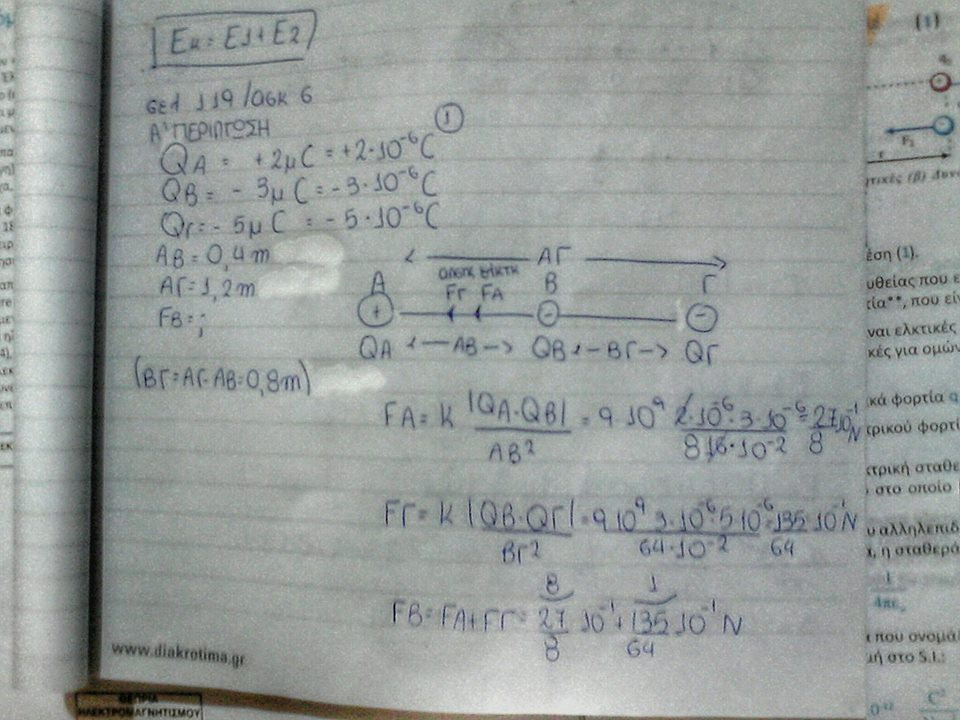 Eκ = E1 + E2
σελ 119 / ασκ 6
Α' ΠΕΡΙΠΤΩΣΗ
QA = +2μC = +2·10⁻⁶C
①
QB = -3μC = -3·10⁻⁶C
QΓ = -5μC = -5·10⁻⁶C
AB = 0,4m
ΑΓ = 1,2m
FB = ;
(ΒΓ = ΑΓ - ΑΒ = 0,8m)
ΑΓ
Α FΓ FA Β Γ
+ - -
QA AB QB ΒΓ QΓ
FA = K |QA·QB| / AB² = 9·10⁹ 2·10⁻⁶·3·10⁻⁶ / 8 16·10⁻² = 27/8 10⁻¹ N
FΓ = K |QB·QΓ| / ΒΓ² = 9·10⁹ 3·10⁻⁶·5·10⁻⁶ / 64·10⁻² = 135/64 ·10⁻¹ N
8 1
FB = FA + FΓ = 27/8 10⁻¹ + 135/64 10⁻¹ N
www.diakrotima.gr
ΘΕΩΡΙΑ
ΗΛΕΚΤΡΟΜΑΓΝΗΤΙΣΜΟΥ
(1)
F₁
r
έση (1).
υθείας που ε
τία**, που είν
ναι ελκτικές
κές για ομών
κά φορτία q
τρικού φορτί
κτρική σταθε
στο οποίο
υ αλληλεπιδ
α, η σταθερά
1
4πε₀
α που ονομά
μή στο S.I.:
C²